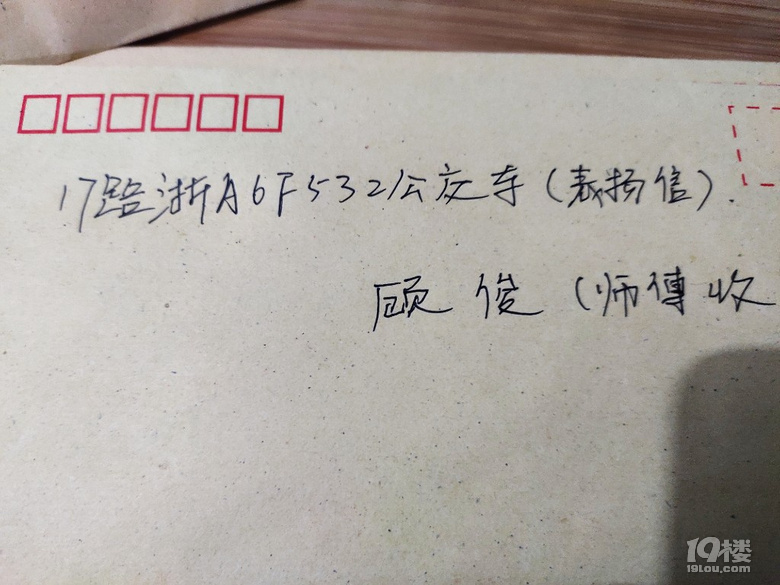 17路浙A6F532公交车(表扬信).
顾俊(师傅收
19楼
19lou.com